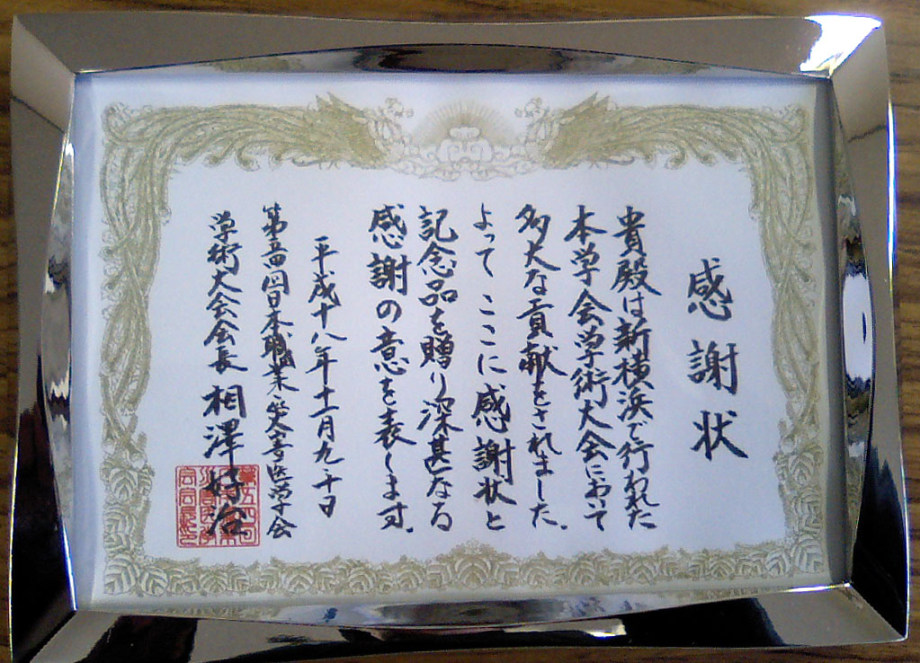 感謝状
貴殿は新横浜で行われた
本学会学術大会において
多大な貢献をされました.
よって ここに感謝状と
記念品を贈り深甚なる
感謝の意を表します.
平成十八年十一月九、十日
第五四回日本職業・災害医学会
学術大会会長 相澤好治